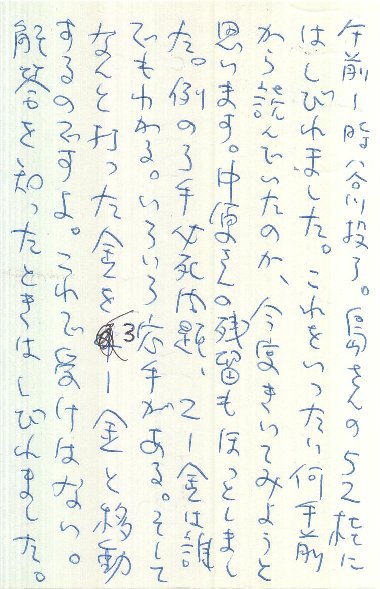 午前1時谷川投了。島さんの52桂に
はしびれました。これをいったい何手前
から読んでいたのか、今度きいてみようと
思います。中原さんの残留もほっとしまし
た。例の3手必死問題、21金は誰
でもわかる。いろいろ応手がある。そして
なんと打った金を31金と移動
するのですよ。これで受けはない。
解答を知ったときはしびれました。